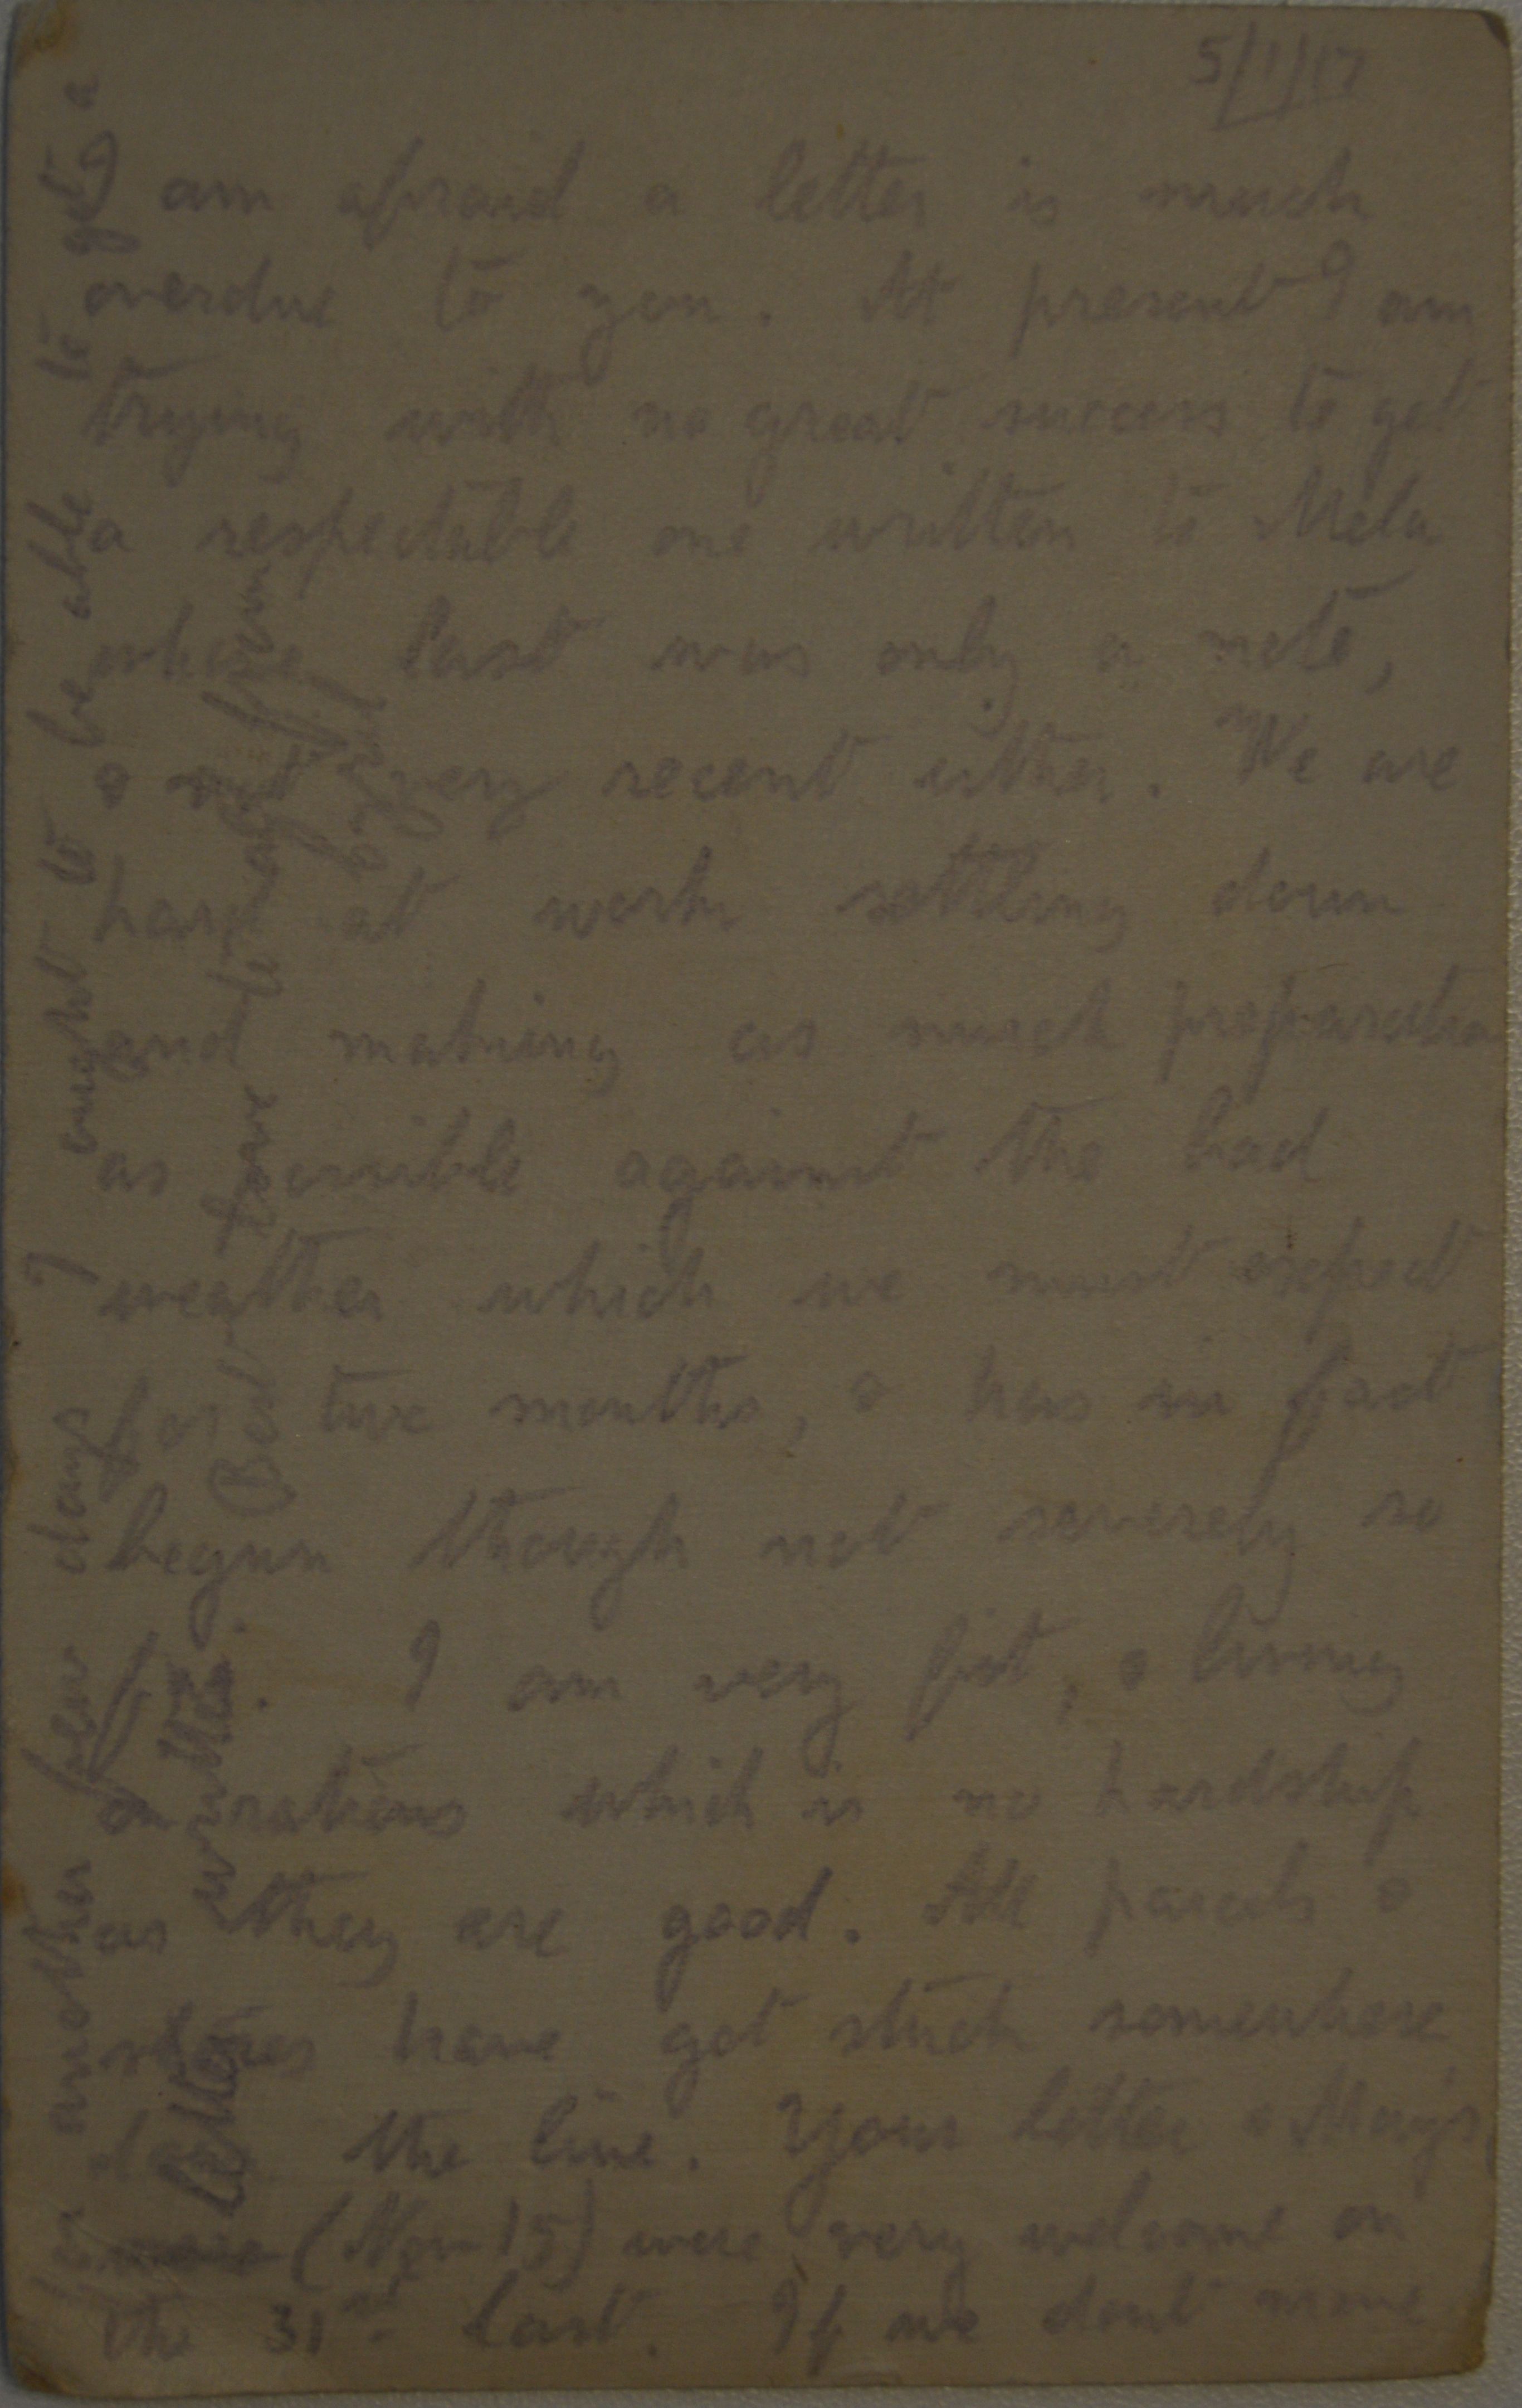 5/1/17
I am afraid a letter is much
overdue to you. At present I am
trying with no great success to get
a respectable one written to Mela
whose last was only a note,
& not very recent either. We are
hard at work settling down
and making as much preparation
as possible against the bad
weather which we must expect
for two months, & has in fact
begun though not severely so
far. I am very fit, & living
on rations which is no hardship
as they are good. All parcels &
stores have got stuck somewhere
down the line. Your letter & May's
(Nov 15) were very welcome on
the 31st last. If we dont move
for another few days I ought to be able to get a
letter written. Best love to all from